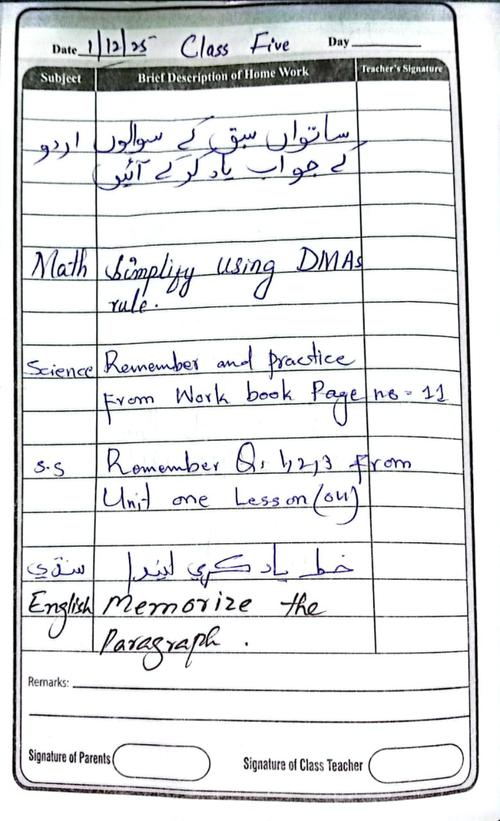 Date 1/12/25 Class Five Day
Subject Brief Description of Home Work Teacher's Signature
اردو ساتواں سبق کے سوالوں
کے جواب یاد کر کے آئیں
Math Simplify using DMAs
rule.
Science Remember and practice
From Work book Page no = 11
S.S Remember Q: 1,2,3 from
Unit one Lesson (04)
سنڌي خط ياد ڪري ايندا
English Memorize the
Paragraph.
Remarks:
Signature of Parents Signature of Class Teacher